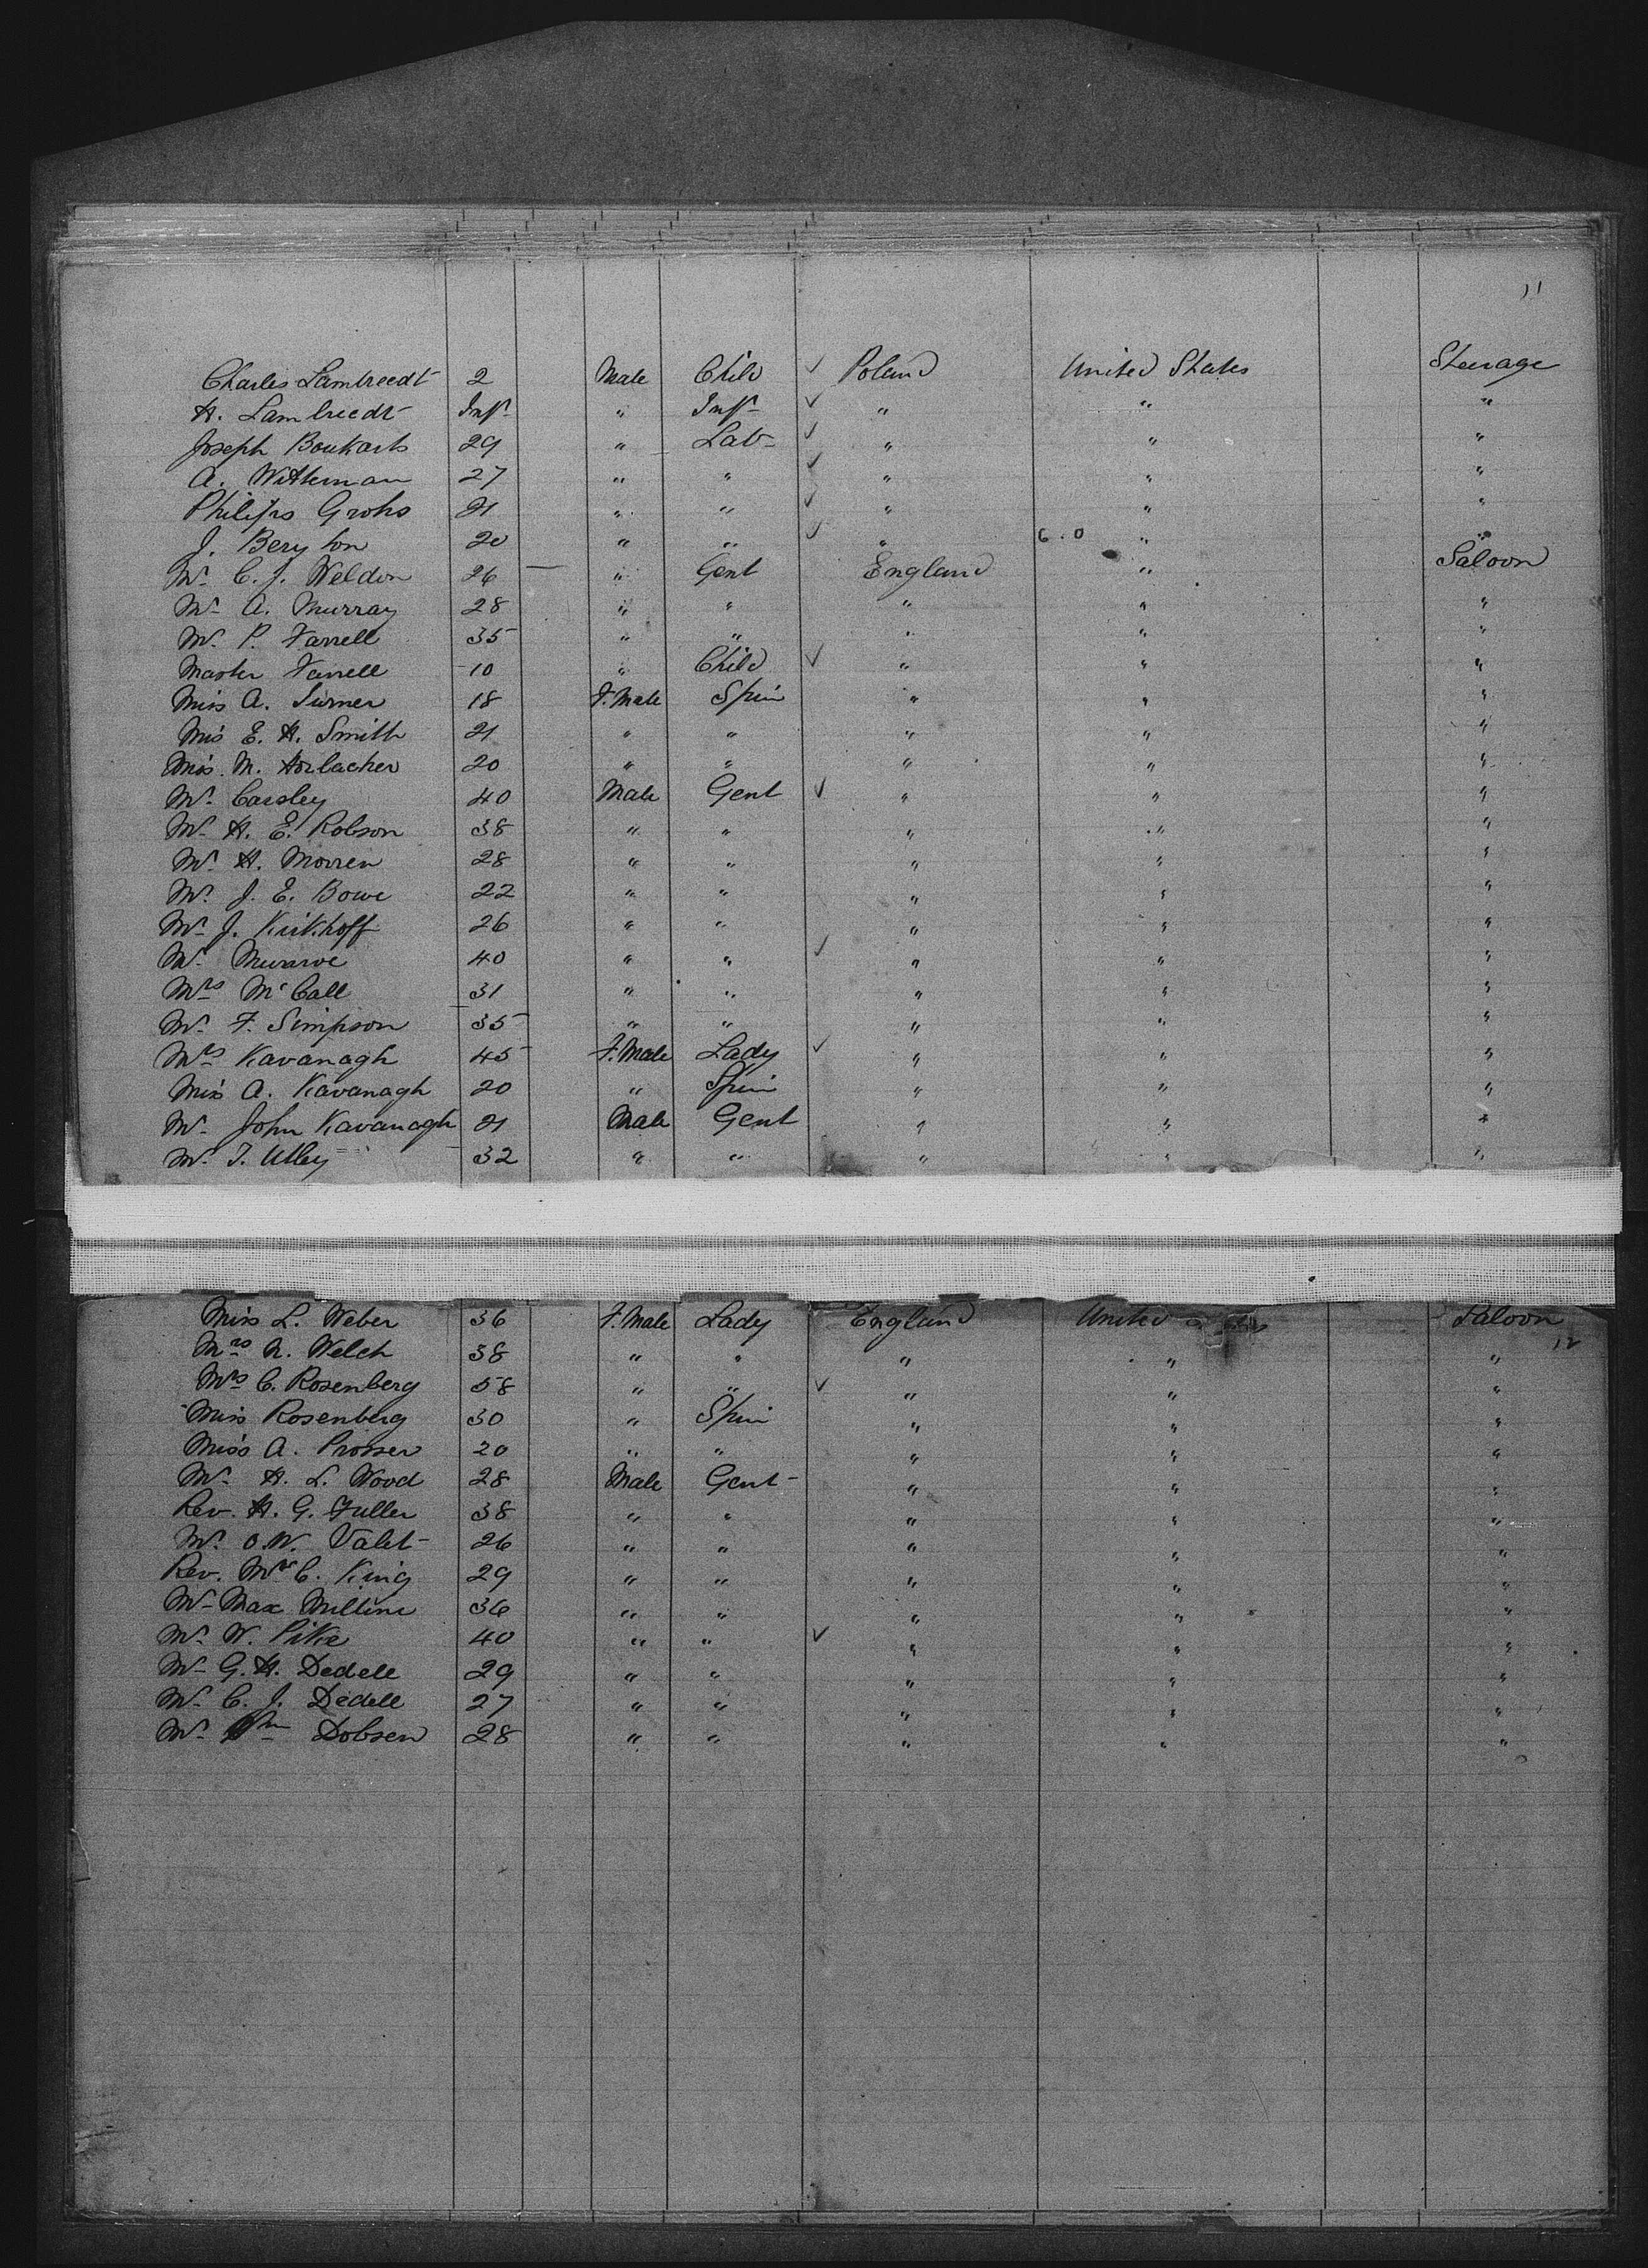 11
Charles Lambreedt 2 Male Child ✓ Poland United States Steerage
H. Lambreedt Inft " Inft ✓ " " "
Joseph Boukarts 29 " Lab ✓ " " "
A. Witteman 27 " " ✓ " " "
Philips Grohs 21 " " ✓ " " "
J. Beryton 20 " " ✓ " 6.0 " "
Mr. C. J. Weldon 26 " Gent England " Saloon
Mr. A. Murray 28 " " " " "
Mr. P. Farrell 35 " " " " "
Master Farrell 10 " Child ✓ " " "
Miss A. Turner 18 F. Male Spin " " "
Miss E. H. Smith 21 " " " " "
Miss M. Horlacher 20 " " " " "
Mr. Carsley 40 Male Gent ✓ " " "
Mr. H. E. Robson 38 " " " " "
Mr. H. Morren 28 " " " " "
Mr. J. E. Bowe 22 " " " " "
Mr. J. Kirkhoff 26 " " " " "
Mr. Munroe 40 " " ✓ " " "
Mrs McCall 31 " " " " "
Mr. F. Simpson 35 " " " " "
Mrs Kavanagh 45 F. Male Lady ✓ " " "
Miss A. Kavanagh 20 " Spin " " "
Mr. John Kavanagh 21 Male Gent " " "
Mr. T. Utley 32 " " " " "
Miss L. Weber 36 F. Male Lady England United States Saloon
12
Mrs N. Welch 38 " " " " "
Mrs C. Rosenberg 58 " " ✓ " " "
Miss Rosenberg 30 " Spin " " "
Miss A. Prosser 20 " " " " "
Mr. H. L. Wood 28 Male Gent " " "
Rev. H. G. Fuller 38 " " " " "
Mr. O. W. Valet 26 " " " " "
Rev. Mr C. King 29 " " " " "
Mr. Max Milline 36 " " " " "
Mr. W. Pike 40 " " ✓ " " "
Mr. G. H. Dedell 29 " " " " "
Mr. C. J. Dedell 27 " " " " "
Mr. Wm Dobsen 28 " " " " "